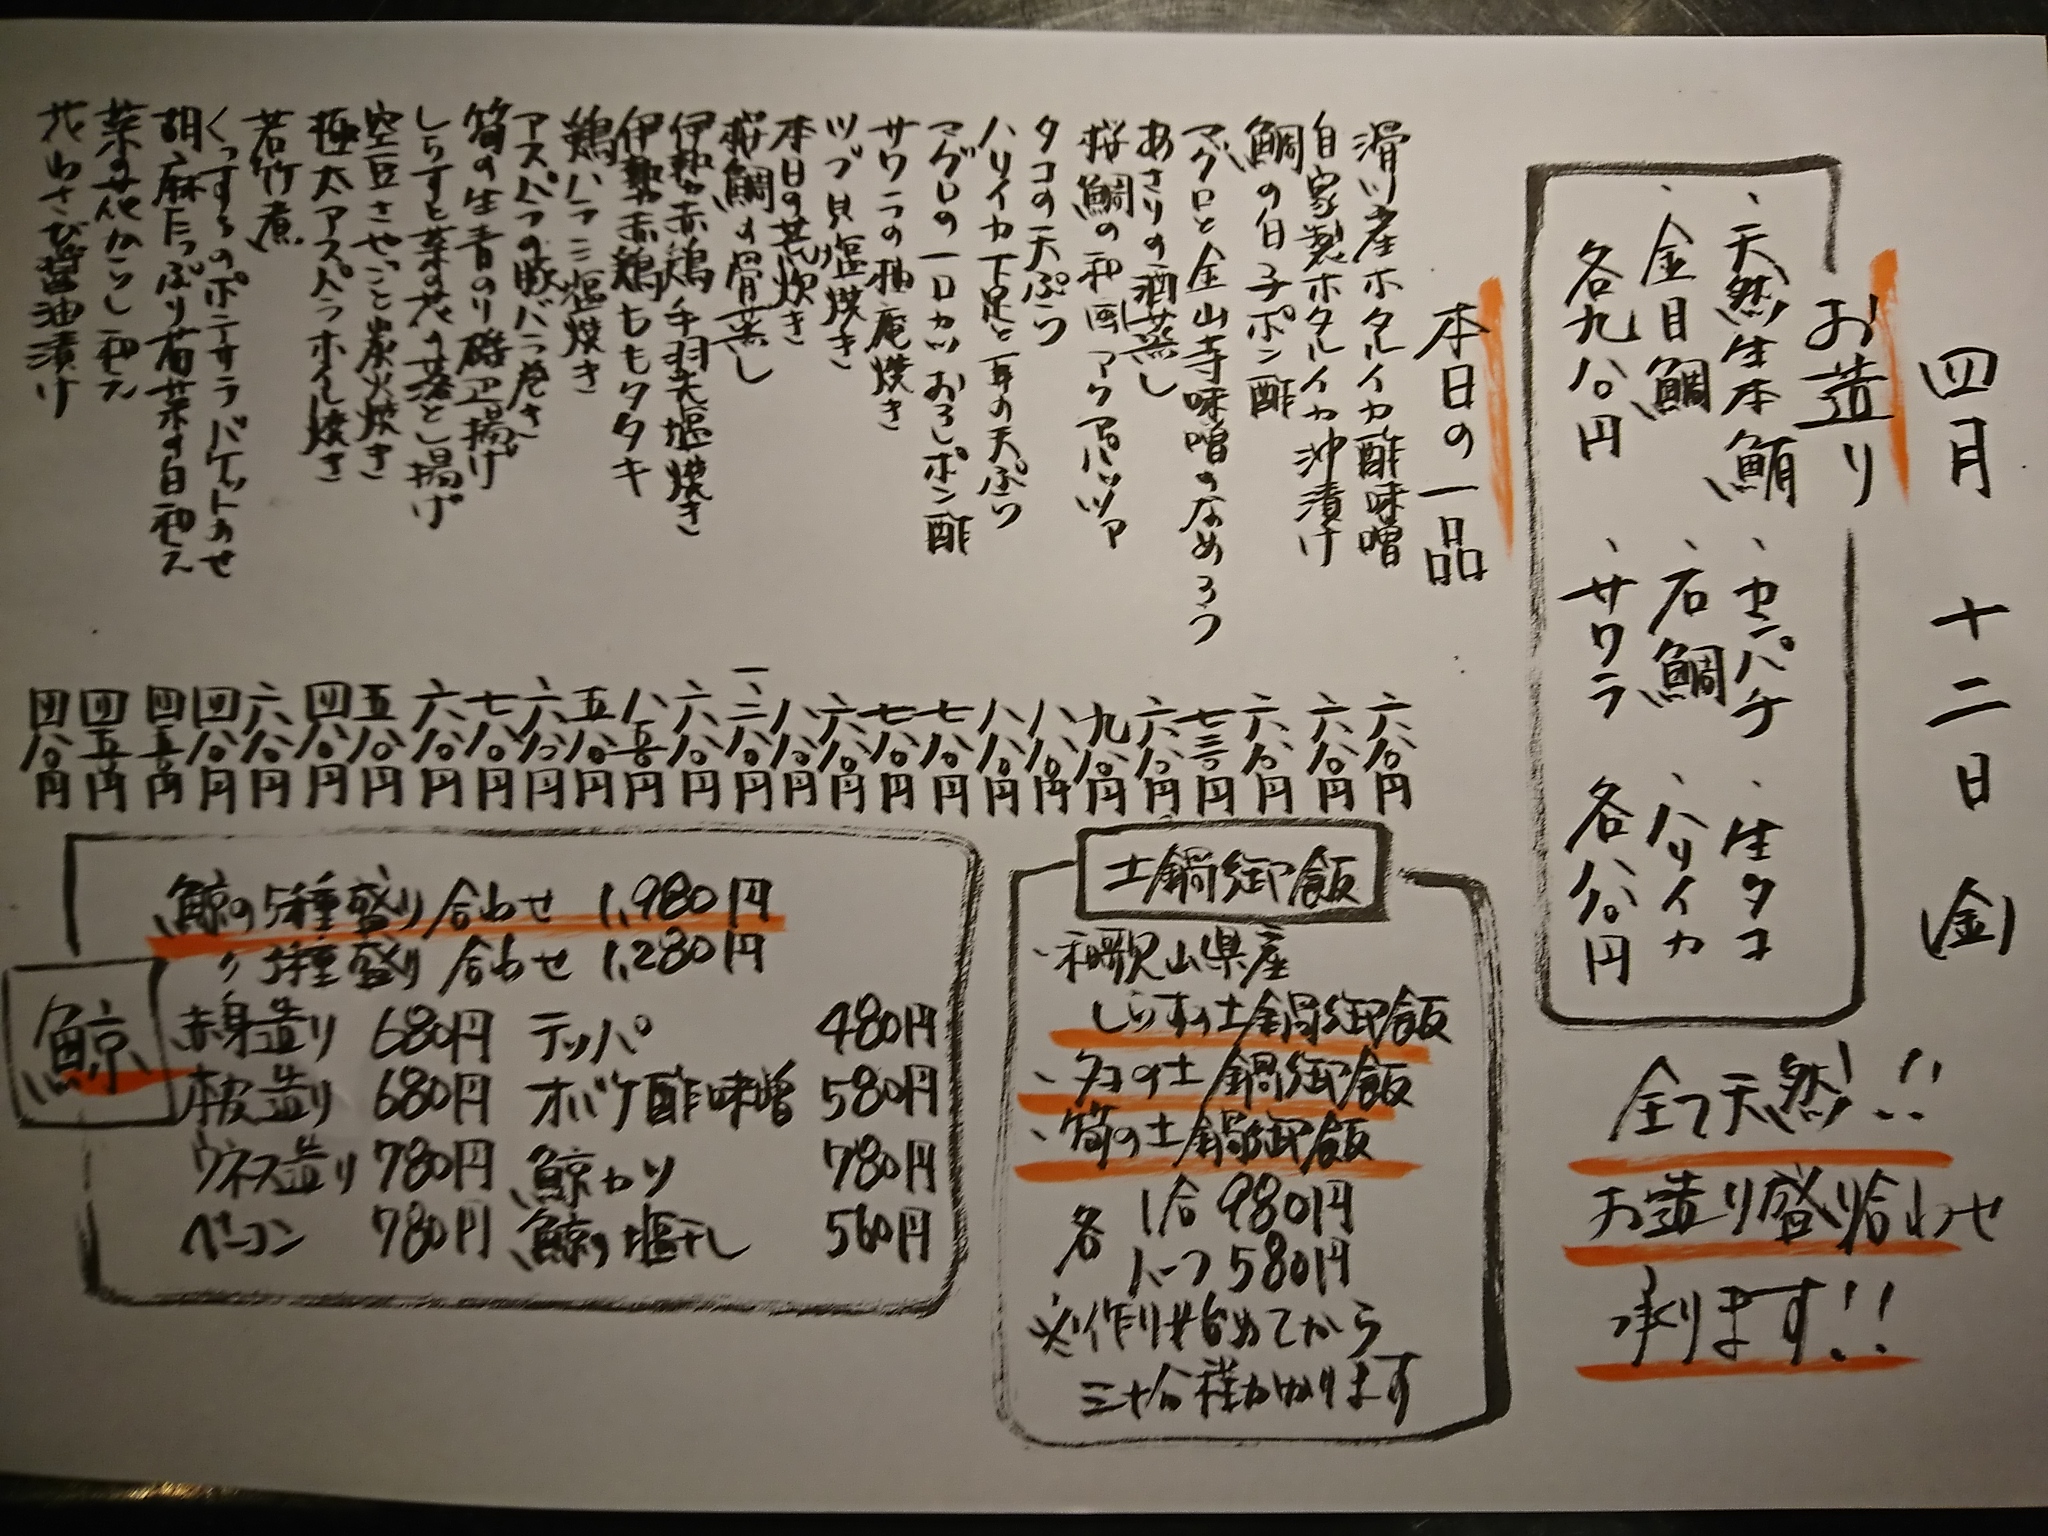 四月 十二日(金)
お造り
、天然生本鮪 、セバチ 、生タコ
、金目鯛 、石鯛 、ハリイカ
各九八〇円 、サワラ 各八八〇円
全て天然!!
お造り盛り合わせ
承ります!!
本日の一品
滑川産ホタルイカ酢味噌 六八〇円
自家製ホタルイカ沖漬け 六八〇円
鯛の白子ポン酢 六八〇円
マグロと金山寺味噌のなめろう 七三〇円
あさりの酒蒸し 六八〇円
桜鯛の和風アクアパッツァ 九八〇円
タコの天ぷら 八八〇円
ハリイカ下足と耳の天ぷら 八八〇円
マグロの一口カツおろしポン酢 七八〇円
サワラの柚庵焼き 七八〇円
ツブ貝塩焼き 六八〇円
本日の荒炊き 八八〇円
桜鯛の骨蒸し 一、二八〇円
伊勢赤鶏手羽先塩焼き 六八〇円
伊勢赤鶏ももタタキ 八五〇円
鶏ハラミ塩焼き 五八〇円
アスパラの豚バラ巻き 六八〇円
筍の生青のり磯辺揚げ 七八〇円
しらすと菜の花の落とし揚げ 六八〇円
空豆さやごと炭火焼き 五八〇円
極太アスパラホイル焼き 四八〇円
若竹煮 六八〇円
くっするのポテサラバケットのせ 四八〇円
胡麻たっぷり春菊の白和え 四五〇円
菜の花からし和え 四五〇円
花わさび醤油漬け 四八〇円
土鍋御飯
、和歌山県産
しらすの土鍋御飯
、タコの土鍋御飯
、筍の土鍋御飯
各 1合 980円
ハーフ 580円
※作り始めてから
三十分程かかります
鯨
鯨の5種盛り合わせ 1,980円
〃 3種盛り合わせ 1,280円
赤身造り 680円 テッパ 480円
本皮造り 680円 オバケ酢味噌 580円
ウネス造り 780円 鯨カツ 780円
ベーコン 780円 鯨の塩干し 560円